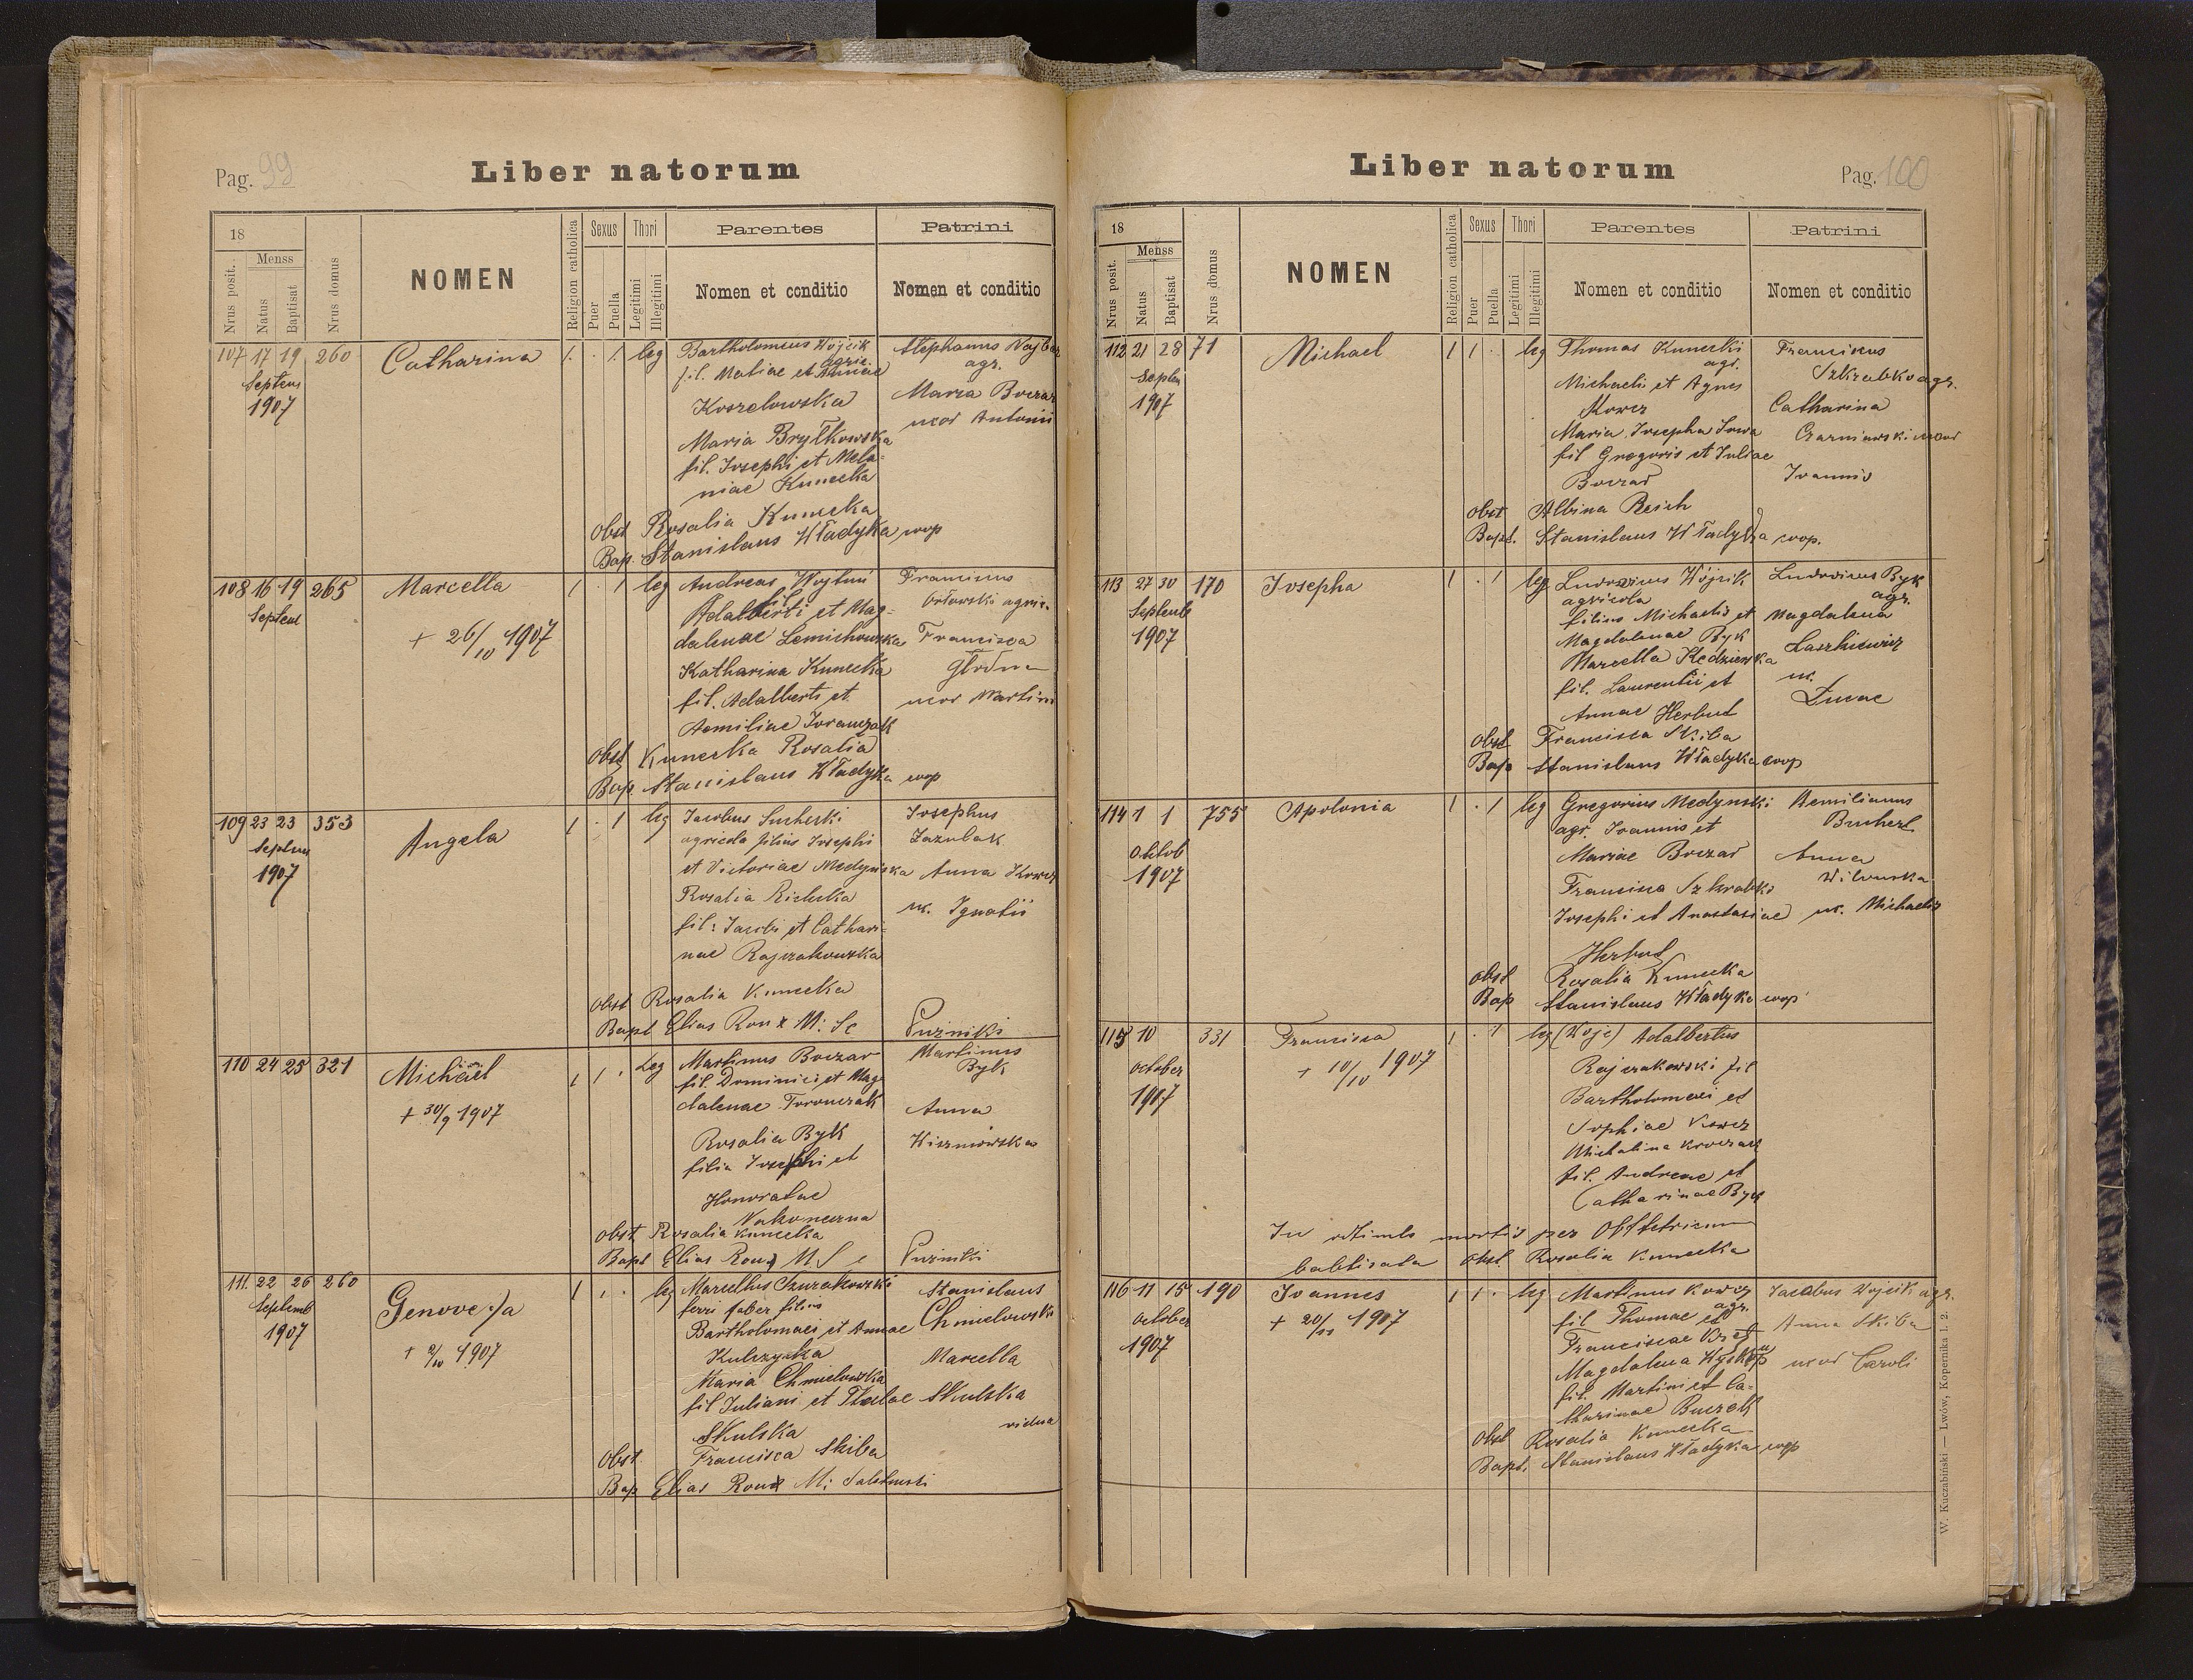 Pag. 99
Liber natorum
18
Menss
Nrus posit.
Natus
Baptisat
Nrus domus
NOMEN
Religion catholica
Sexus
Puer
Puella
Thori
Legitimi
Illegitimi
Parentes
Nomen et conditio
Patrini
Nomen et conditio
107 17 19 260 Catharina 1 . 1 leg Bartholomeus Wojcik
agric.
Septem
1907
fil. Matiae et Annae
Koszelowska
Maria Bryłkowska
fil. Josephi et Mela-
niae Kunecka
Stephanus
agr.
Maria Boczar
uxor Antonii
Obst Rosalia Kunecka
Bap. Stanislaus Władyka coop
108 16 19 265 Marcella 1 . 1 leg Andreas
Septem
+ 26/10 1907
fil.
Adalberti et Mag-
dalenae
Katharina Kunecka
fil. Adalberti et
Aemiliae
Orłowski agric.
Francisca
Głodna
uxor Martini
Obst Kunecka Rosalia
Bap. Stanislaus Władyka coop
109 23 23 353 Angela 1 . 1 leg Jacobus Sucherki
Septem
1907
agricola filius Josephi
et Victoriae Medyńska
Rosalia
fil. Jacobi et Cathari-
nae Rajzakowska
Josephus
Zazulak
Anna Kowcz
ux. Ignatii
Obst Rosalia Kunecka
Bapt Elias M. Sc Pużniki
110 24 25 321 Michael 1 1 . Leg Martinus Boczar
+ 30/9 1907
fil. Dominici et Mag-
dalenae Toronczak
Rosalia Byk
filia Josephi et
Honoratae
Nakoneczna
Martinus
Byk
Anna
Wiszniowska
Obst. Rosalia Kunecka
Bapt Elias M. S c Pużniki
111. 22 26 260 Genovefa 1 . . leg Marcellus
Septemb
1907
+ 2/10 1907
ferri faber filius
Bartholomaei et Annae
Kulczycka
Maria Chmielowska
fil Juliani et
Skulska
Stanislaus
Chmielowski
Marcella
Skulska
vidua
Obst. Francisca Skiba
Bap Elias M.
Liber natorum
Pag. 100
18
Menss
Nrus posit.
Natus
Baptisat
Nrus domus
NOMEN
Religion catholica
Sexus
Puer
Puella
Thori
Legitimi
Illegitimi
Parentes
Nomen et conditio
Patrini
Nomen et conditio
112 21 28 71 Michael 1 1 . leg Thomas Kunecki
agr.
Septem
1907
Michaelis et Agnes
Kowcz
Maria Josepha Sowa
fil Gregoris et Juliae
Boczar
Franciscus
Szkrabko agr.
Catharina
Czarniawski uxor
Joannis
Obst Albina Reich
Bapt. Stanislaus Władyka coop.
113 27 30 170 Josepha 1 . 1 leg. Ludovicus Wójcik
Septemb
1907
agricola
filius Michaelis et
Magdalenae Byk
Marcella Kędzierska
fil. Laurentii et
Annae Herbut
Ludovicus Byk
agr.
Magdalena
Laszkiewicz
ux.
Lucae
Obst Francisca Skiba
Bap Stanislaus Władyka coop
114 1 1 755 Apolonia 1 . 1 leg Gregorius Medynski
Oktob
1907
agr. Joannis et
Mariae Boczar
Francisca Szkrabko
Josephi et Anastasiae
Herbut
Aemilianus
Anna
ux. Michaelis
obst Rosalia Kunecka
Bap Stanislaus Władyka coop
115 10 331 Francisca 1 . 1 leg (Wojc) Adalbertus
October
1907
+ 10/10 1907
Rajzakowski fil
Bartholomaei et
Sophiae Kowcz
Michalina
fil. Andreae et
Catharinae Byk
In mortis per Obstetricem
babtisata Obst. Rosalia Kunecka
116 11 15 190 Joannes 1 1 . leg Martinus Kowcz
agr.
October
1907
+ 20/11 1907
fil Thomae et
Franciscae
Magdalena
fil. Martini et Ca-
tharinae
Jacobus Wojcik agr.
Anna Skiba
uxor Caroli
Obst Rosalia Kunecka
Bapt. Stanislaus Władyka coop
W. Kuczabiński — Lwów, Kopernika l. 2.